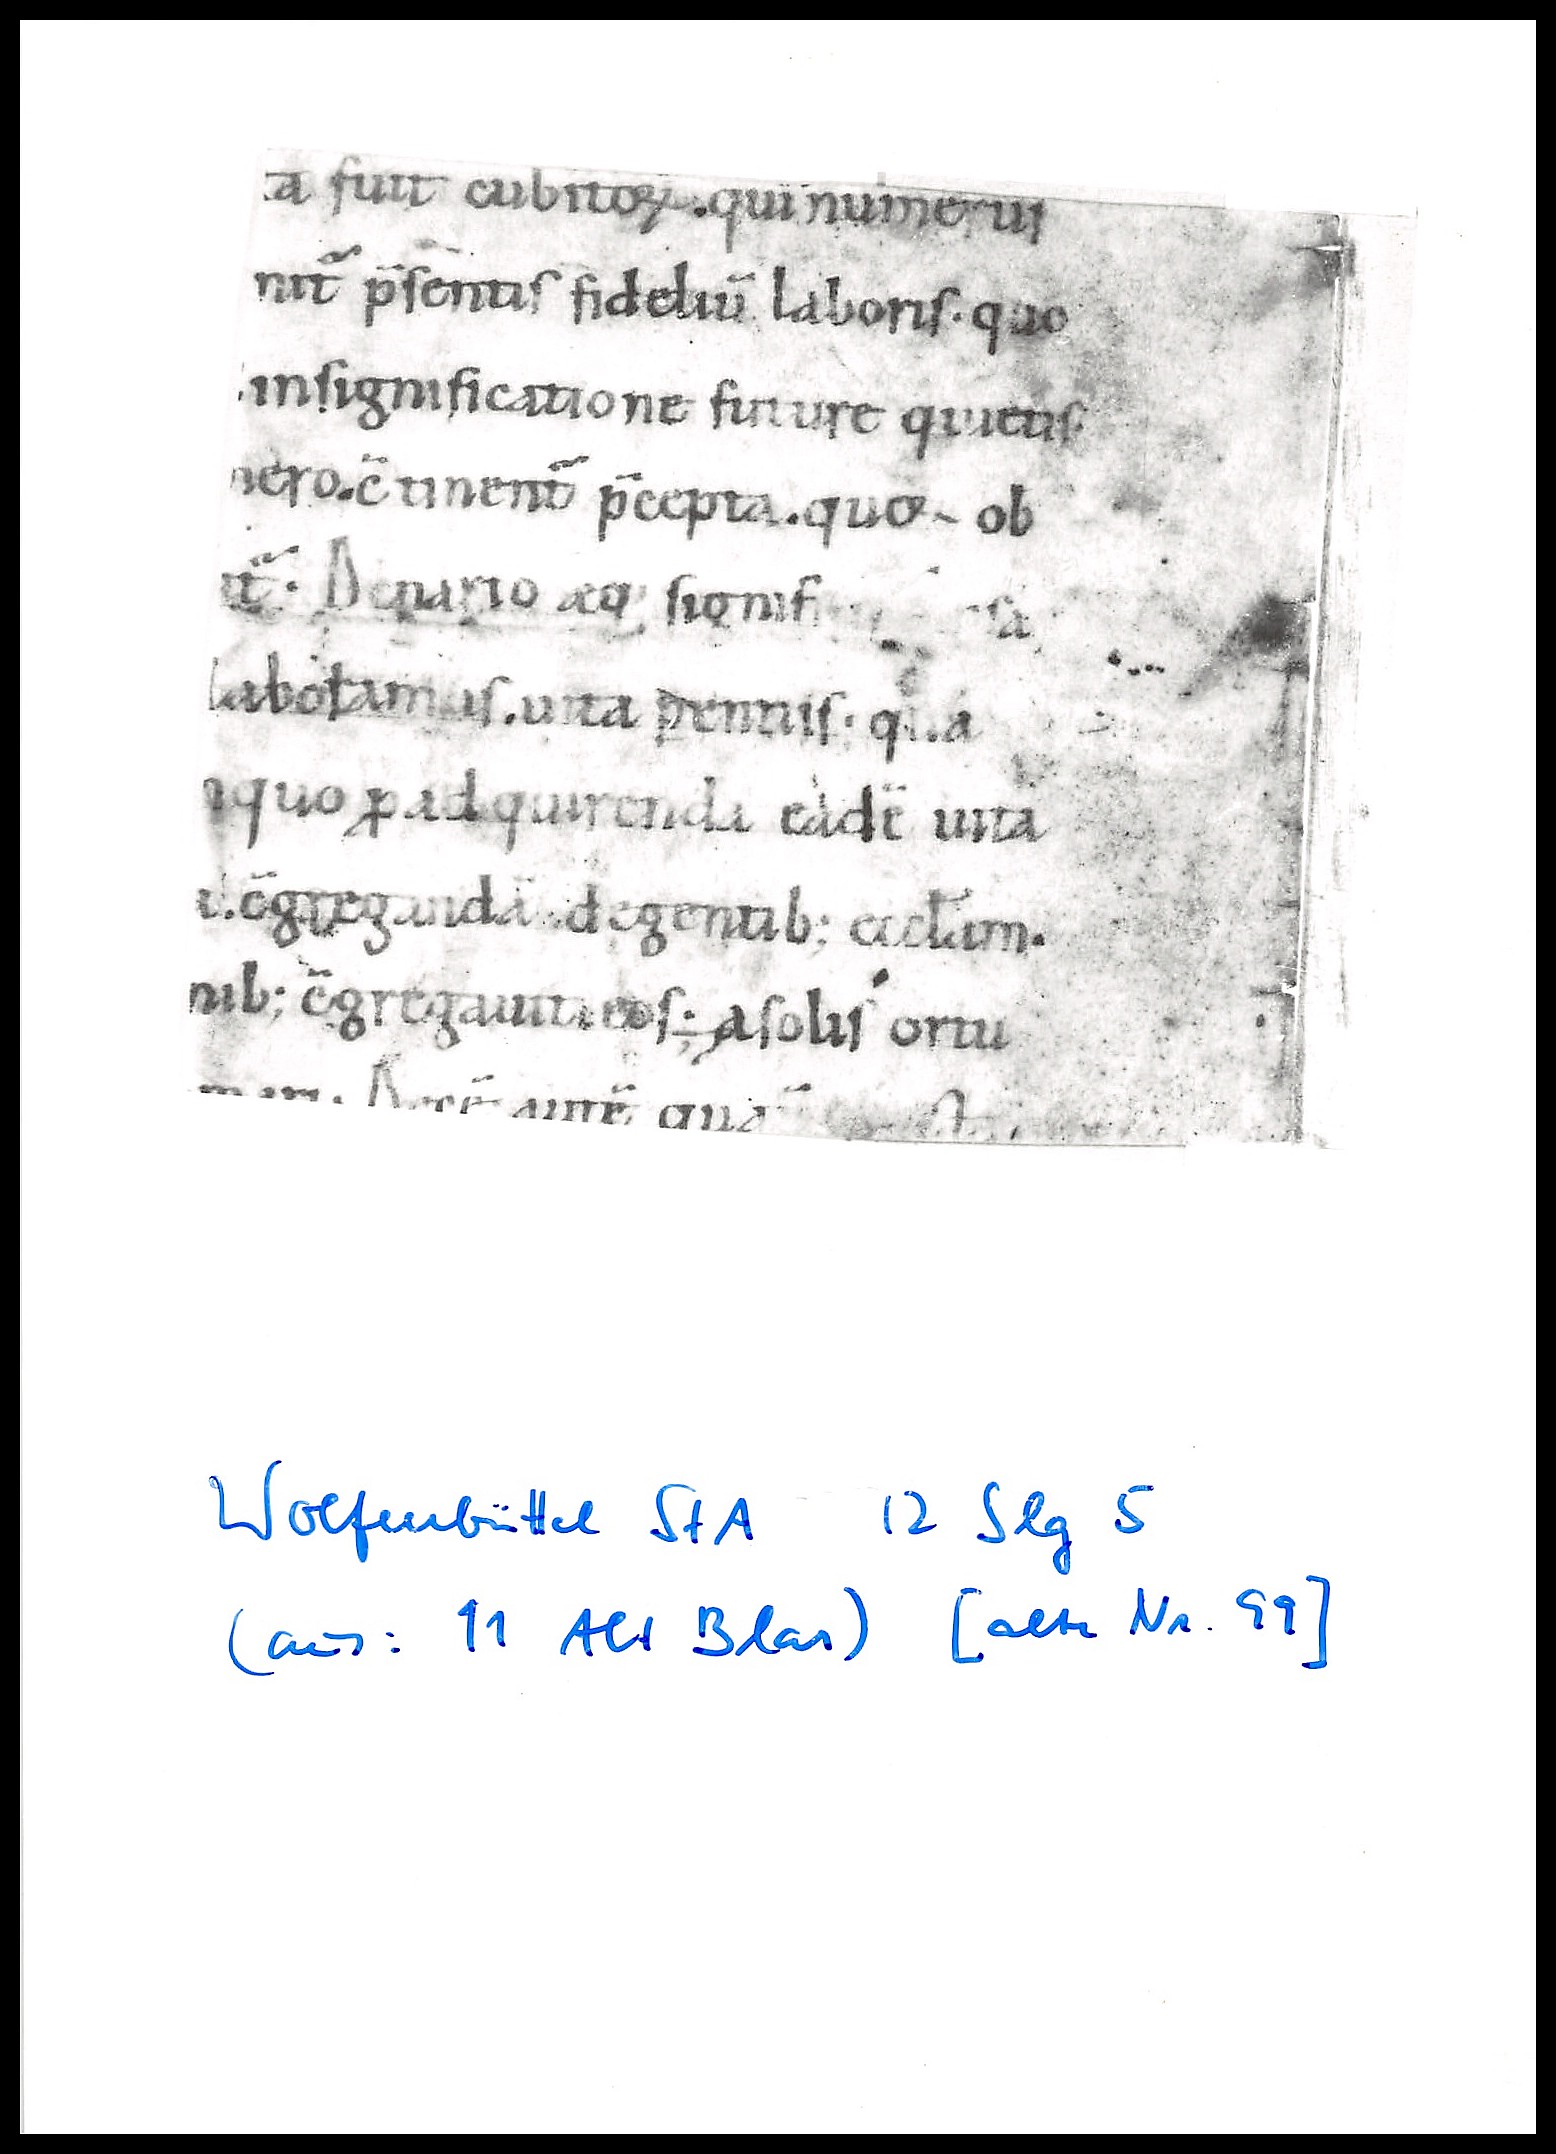 a fuit cubitoꝝ .qui numerus
nit᷑ p̄sentis fideliū laboris. quo
in significatione future quietis
nero. c̄tinent᷑ p̄cepta. quo ob
t᷑. Denario aeq signif
Laboramus. uita ꝑennis. qua
quo ꝓ adquirenda eādē uitā
c̄gregandā degentib; eccl̄am.
nib; c̄gregauit eos; a solis ortu
Decē autē
Wolfenbüttel StA 12 Slg 5
(aus: 11 Alt Blas) [alte Nr. 99]